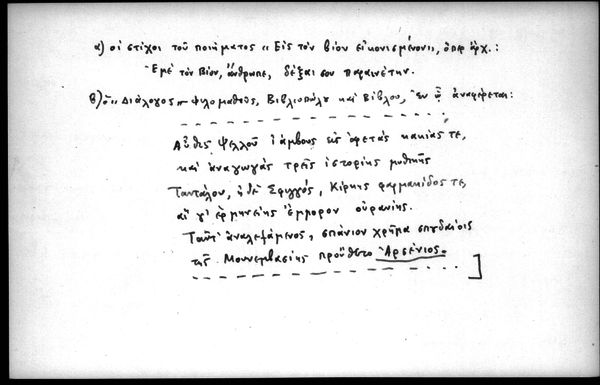 α) οἱ στίχοι τοῦ ποιήματος « Εἰς τὸν βίον εἰκονισμένον», ὅπερ ἄρχ.:
Ἐμὲ τὸν Βίον, ἄνθρωπε, δέξαι σου παραινέτην.
β) ὁ « Διάλογος » Φιλομαθοῦς, Βιβλιοπώλου καὶ Βίβλου, ἐν ᾧ ἀναφέρεται:
Αὖθις Ψελλοῦ ἰάμβους εἰς ἀρετὰς κακίας τε,
καὶ ἀναγωγὰς τρεῖς ἱστορίης μυθικῆς
Ταντάλου, ἠδὲ Σφιγγός, Κίρκης φαρμακίδος τε,
αἵ γ' ἑρμηνείης ἔμμορον οὐρανίης.
Ταῦτ' ἀναλεξάμενος, σπάνιον χρῆμα σπουδαίοις
τῆς Μονεμβασίης προὔθετο Ἀρσένιος.]